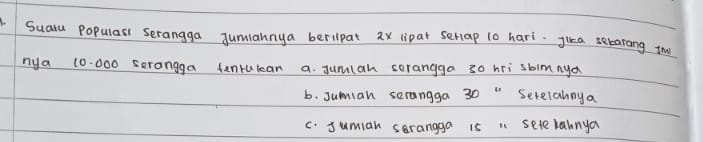 1. Suatu Populasi Serangga Jumlahnya berlipat 2x lipat Setiap 10 hari. Jika sekarang Jml
nya 10.000 serangga tentukan a. Jumlah serangga 30 hri sblm nya
b. Jumlah serangga 30 " Setelahnya
c. Jumlah serangga 15 " setelahnya